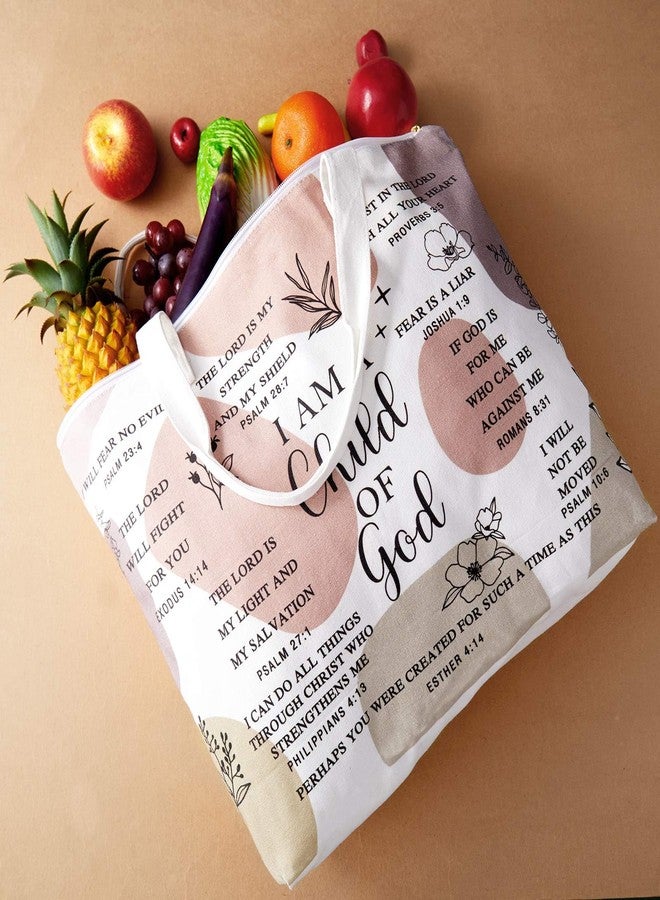 ST IN THE LORD
H ALL YOUR HEART
PROVERBS 3:5
FEAR IS A LIAR
JOSHUA 1:9
IF GOD IS
FOR ME
WHO CAN BE
AGAINST ME
ROMANS 8:31
I WILL
NOT BE
MOVED
PSALM 10:6
THE LORD IS MY
STRENGTH
AND MY SHIELD
PSALM 28:7
I AM A
Child
OF
God
WILL FEAR NO EVIL
PSALM 23:4
THE LORD
WILL FIGHT
FOR YOU
EXODUS 14:14
THE LORD IS
MY LIGHT AND
MY SALVATION
PSALM 27:1
I CAN DO ALL THINGS
THROUGH CHRIST WHO
STRENGTHENS ME
PHILIPPIANS 4:13
PERHAPS YOU WERE CREATED FOR SUCH A TIME AS THIS
ESTHER 4:14